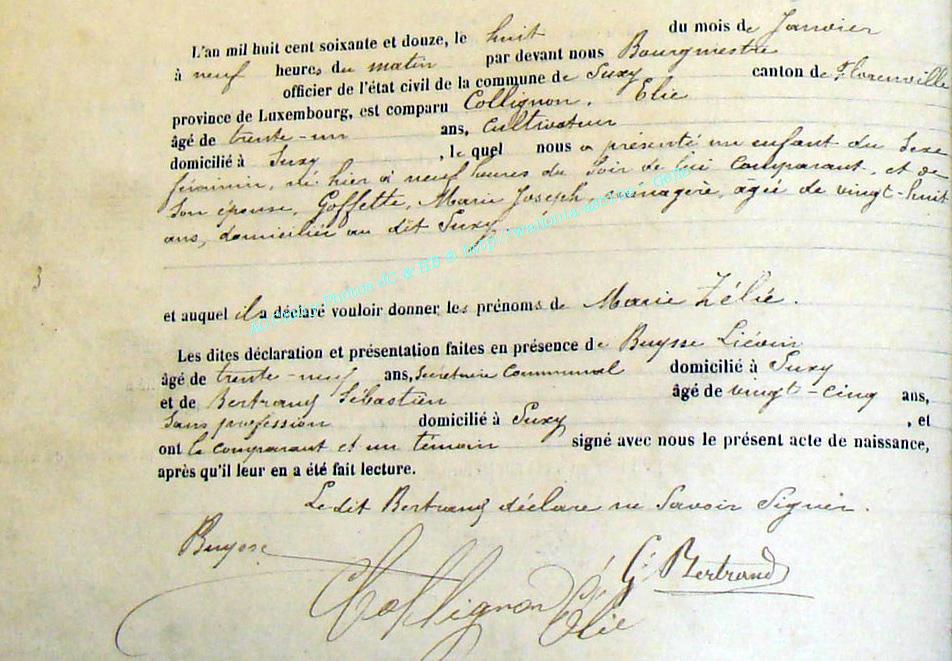 L'an mil huit cent soixante et douze, le huit du mois de Janvier
à neuf heures du matin par devant nous Bourgmestre
officier de l'état civil de la commune de Suxy canton de Florenville
province de Luxembourg, est comparu Collignon, Elie
âgé de trente-un ans, cultivateur
domicilié à Suxy, le quel nous a présenté un enfant du Sexe
féminin, né hier à neuf heures du Soir de lui comparant, et de
Son épouse, Goffette, Marie Joseph, ménagère, âgée de vingt-huit
ans, domiciliée au dit Suxy.
3
et auquel il a déclaré vouloir donner les prénoms de Marie Zélie.
Les dites déclaration et présentation faites en présence de Buysse Liévin
âgé de trente-neuf ans, Secrétaire Communal domicilié à Suxy
et de Bertrand Sébastien âgé de vingt-cinq ans,
Sans profession domicilié à Suxy, et
ont le comparant et un témoin signé avec nous le présent acte de naissance,
après qu'il leur en a été fait lecture.
Le dit Bertrand déclare ne Savoir Signer.
Buysse
G. Bertrand
Collignon Elie